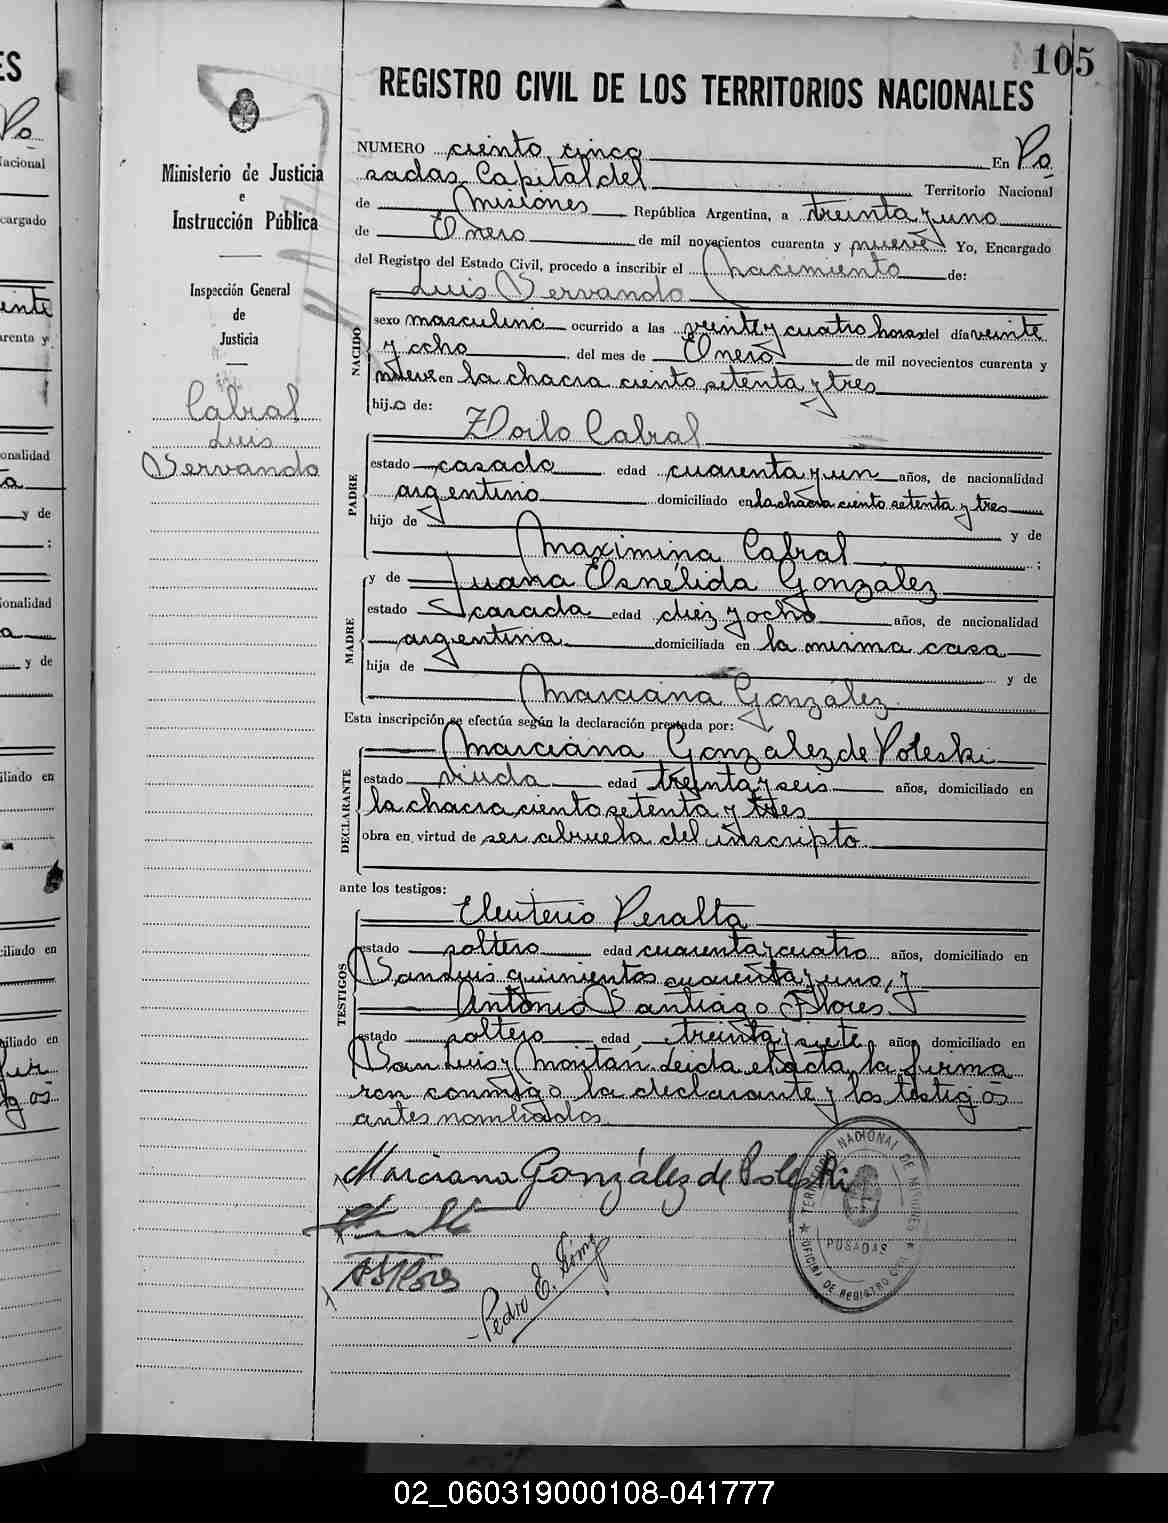 105
REGISTRO CIVIL DE LOS TERRITORIOS NACIONALES
Ministerio de Justicia
e
Instrucción Pública
Inspección General
de
Justicia
Cabral
Luis
Servando
NUMERO ciento cinco En Po
sadas Capital del Territorio Nacional
de Misiones República Argentina, a treinta y uno
de Enero de mil novecientos cuarenta y nueve Yo, Encargado
del Registro del Estado Civil, procedo a inscribir el Nacimiento de:
Luis Servando
NACIDO
sexo masculino ocurrido a las veinte y cuatro horas del día veinte
y ocho del mes de Enero de mil novecientos cuarenta y
nueve en la chacra ciento setenta y tres
hijo de:
Zoilo Cabral
PADRE
estado casado edad cuarenta y un años, de nacionalidad
argentino domiciliado en la chacra ciento setenta y tres
hijo de y de
Maximina Cabral ;
MADRE
y de Juana Esnélida González
estado casada edad diez y ocho años, de nacionalidad
argentina domiciliada en la misma casa
hija de y de
Marciana González
Esta inscripción se efectúa según la declaración prestada por:
DECLARANTE
Marciana González de Poleski
estado viuda edad treinta y seis años, domiciliado en
la chacra ciento setenta y tres
obra en virtud de ser abuela del inscripto
ante los testigos:
TESTIGOS
Eleuterio Peralta
estado soltero edad cuarenta y cuatro años, domiciliado en
San Luis quinientos cuarenta y uno, y
Antonio Santiago Flores
estado soltero edad treinta y siete años domiciliado en
San Luis y Leida el acta, la firma
ron conmigo la declarante y los testigos
antes nombrados.
Marciana González de Poleski
ASFlores
Pedro E. Gómez
TERRITORIO NACIONAL DE MISIONES
POSADAS
OFICINA DE REGISTRO CIVIL
02_060319000108-041777